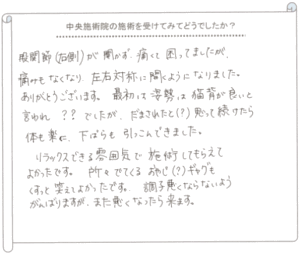 中央施術院の施術を受けてみてどうでしたか？
股関節（右側）が開かず、痛くて困ってましたが、
痛みもなくなり左右対称に開くようになりました。
ありがとうございます。最初って姿勢は猫背が良いと
言われ？？でしたが、だまされたと（？）思って続けたら
体も楽に、下ばらも引っこんできました。
リラックスできる雰囲気で施術してもらえて
よかったです。所々ででくるおやじ（？）ギャグも
くすっと笑えてよかったです。調子悪くならないよう
がんばりますが、また悪くなったら来ます。